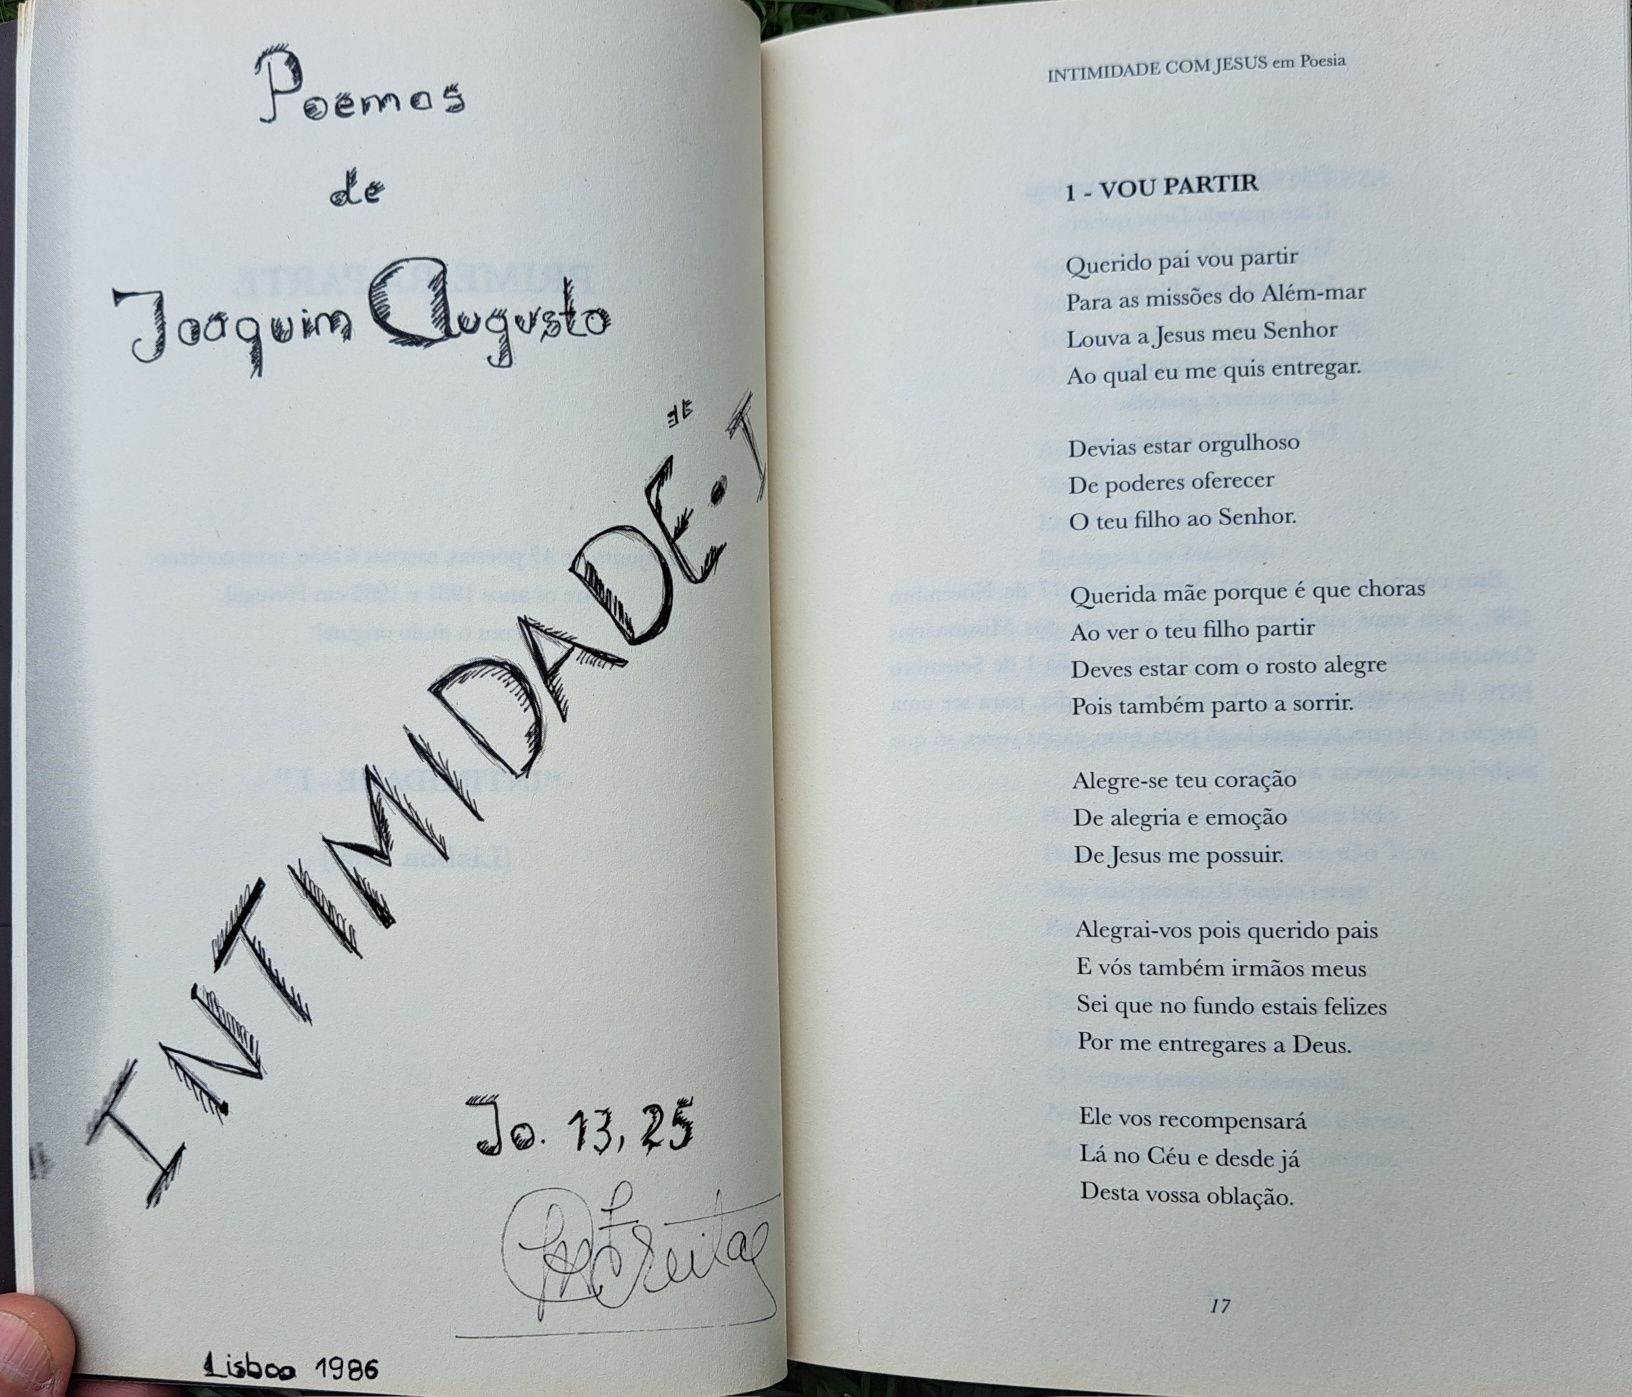 Poemas
de
Joaquim Augusto
"INTIMIDADE. I"
Jo. 13, 25
Freitas
Lisboa 1986
INTIMIDADE COM JESUS em Poesia
1 - VOU PARTIR
Querido pai vou partir
Para as missões do Além-mar
Louva a Jesus meu Senhor
Ao qual eu me quis entregar.
Devias estar orgulhoso
De poderes oferecer
O teu filho ao Senhor.
Querida mãe porque é que choras
Ao ver o teu filho partir
Deves estar com o rosto alegre
Pois também parto a sorrir.
Alegre-se teu coração
De alegria e emoção
De Jesus me possuir.
Alegrai-vos pois querido pais
E vós também irmãos meus
Sei que no fundo estais felizes
Por me entregares a Deus.
Ele vos recompensará
Lá no Céu e desde já
Desta vossa oblação.
17